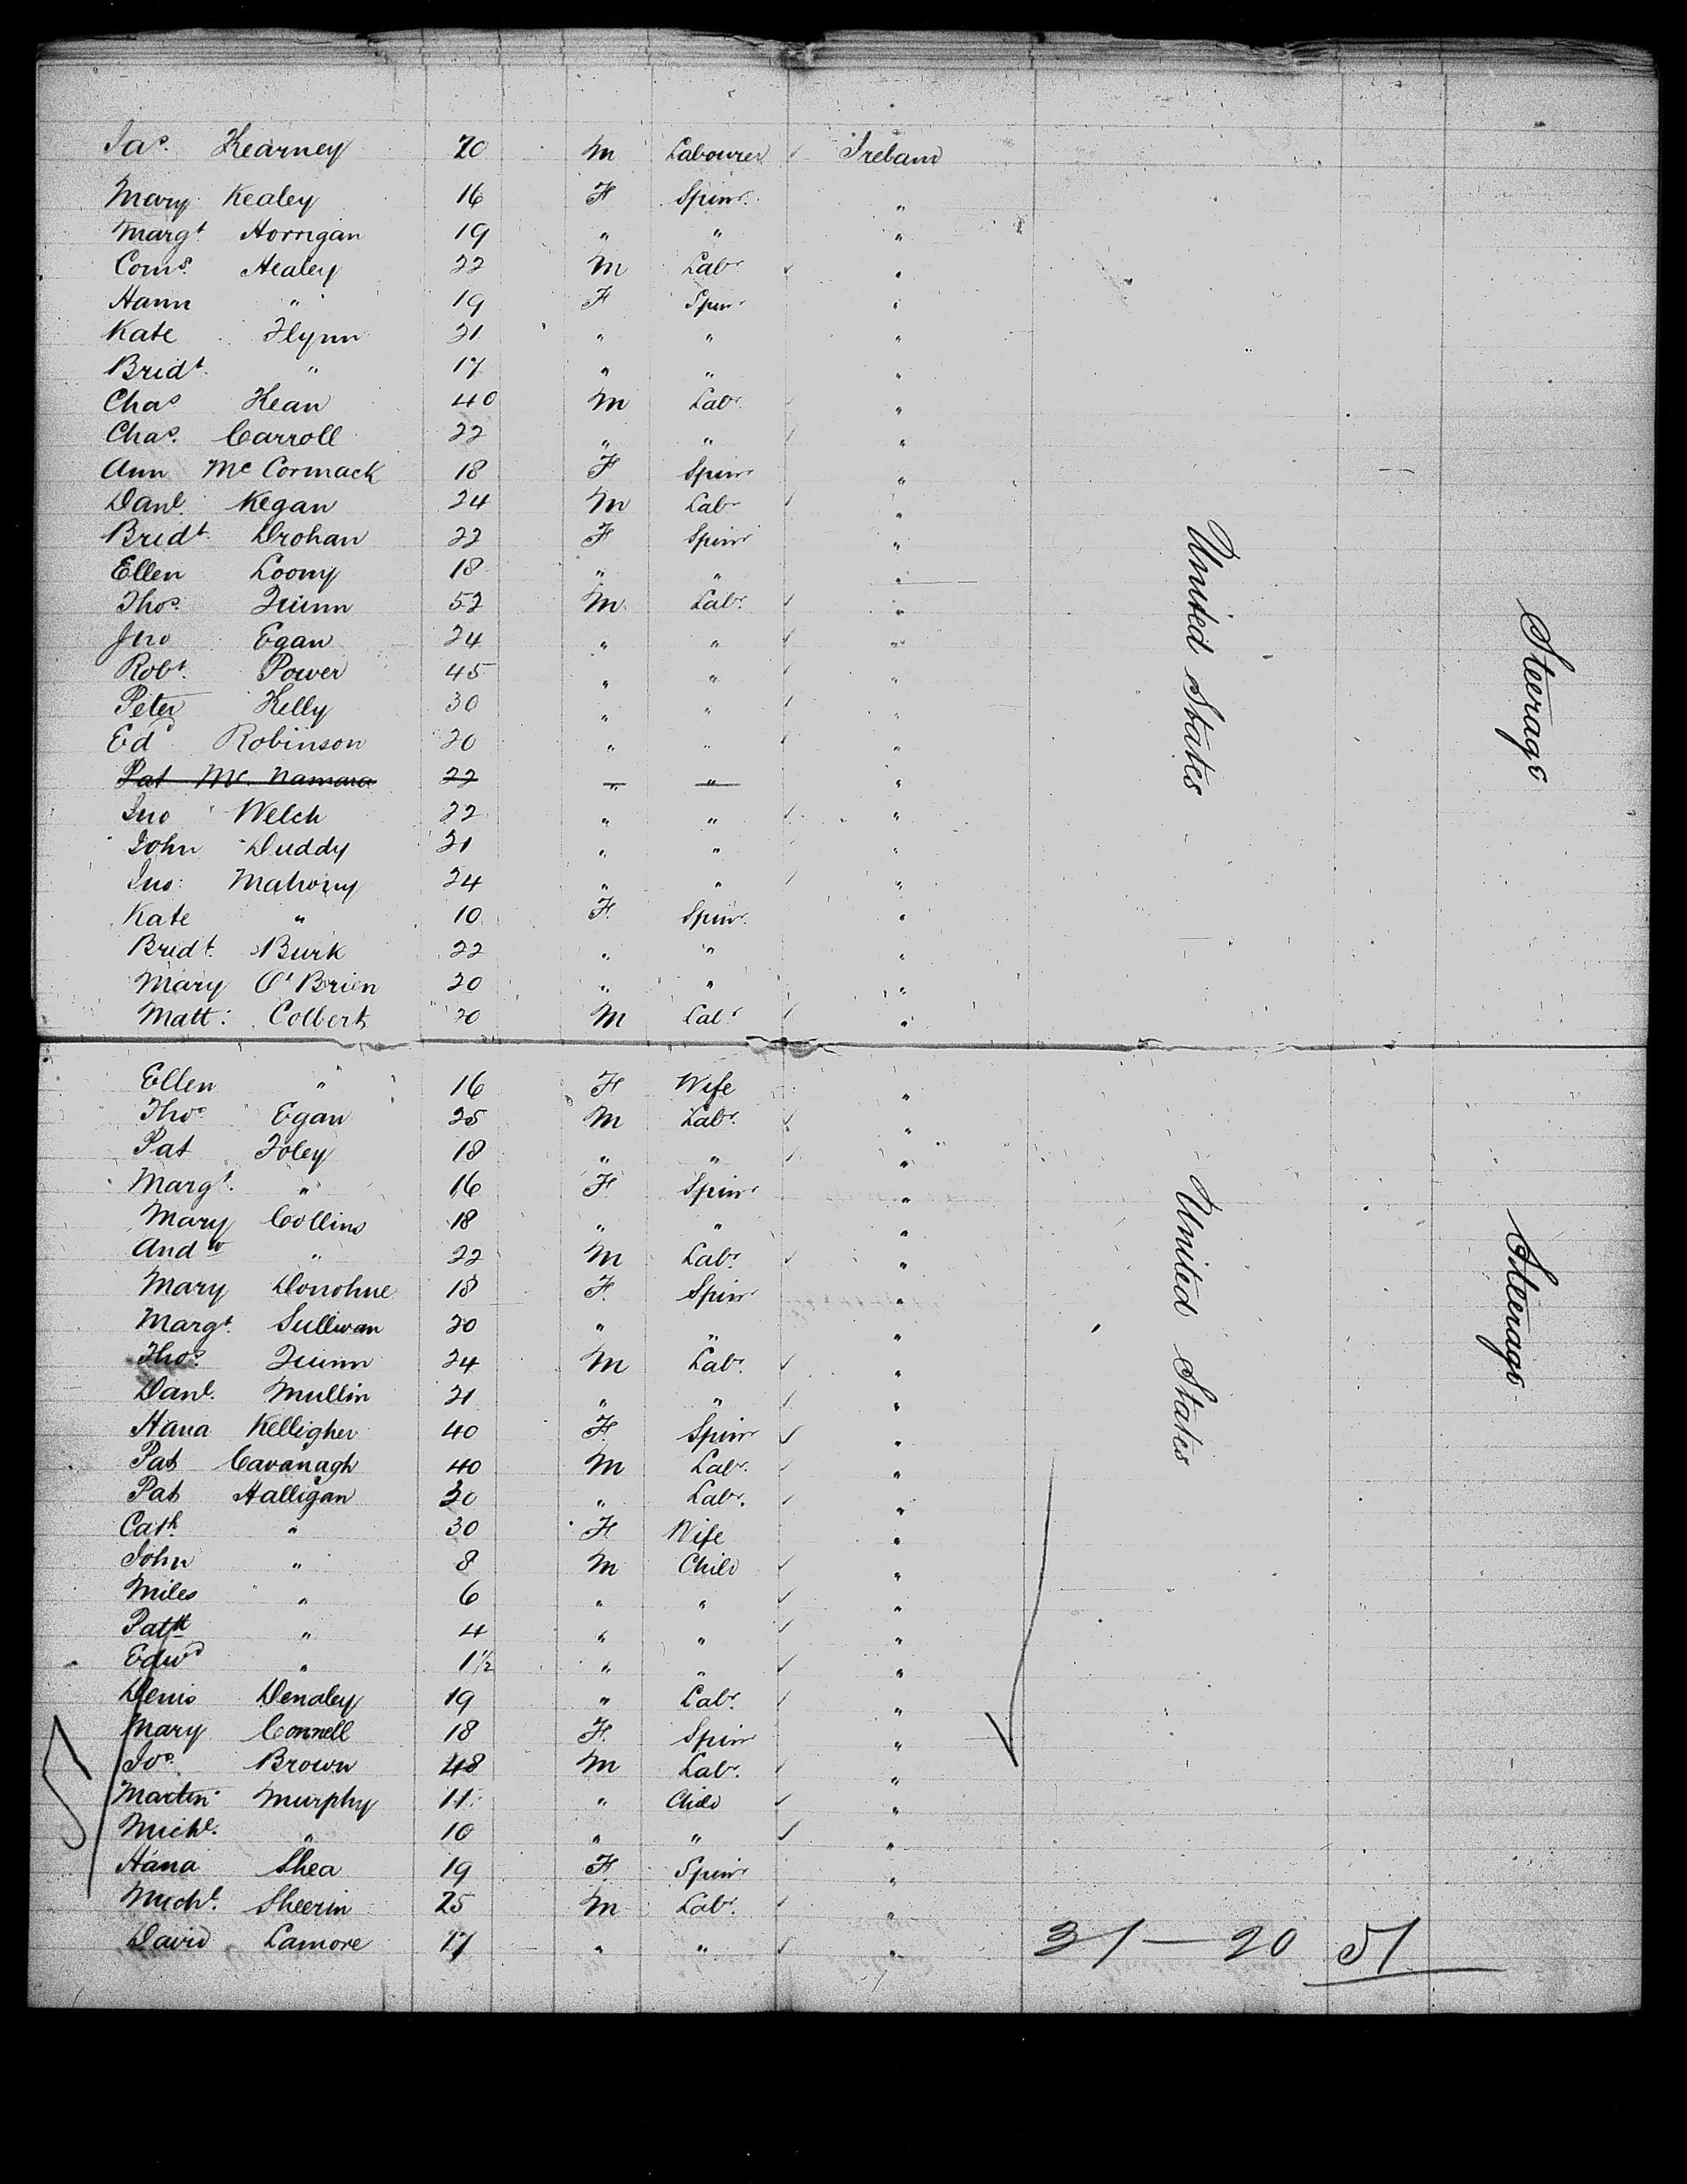 Jas. Kearney 20 M Labourer ✓ Ireland
Mary Kealey 16 F Spinr. "
Margt. Horrigan 19 " " "
Corns. Healey 22 M Labr ✓ "
Hann " 19 F Spinr "
Kate Flynn 21 " " "
Bridt. " 17 " " "
Chas Kean 40 M Labr. ✓ "
Chas. Carroll 22 " " ✓ "
Ann Mc Cormack 18 F Spinr "
Danl. Kegan 24 M Labr ✓ "
Bridt. Drohan 22 F Spinr "
Ellen Loomy 18 " " "
Thos. Quinn 52 M Labr. ✓ "
Jno Egan 24 " " ✓ "
Robt. Power 45 " " ✓ "
Peter Kelly 30 " " ✓ "
Edd Robinson 20 " " ✓ "
Pat Mc. Namara 22 " " "
Jno Welch 22 " " ✓ "
John Duddy 21 " " ✓ "
Jno: Mahony 24 " " ✓ "
Kate " 10 F Spinr. "
Bridt. Burk 22 " " "
Mary O'Brien 20 " " "
Matt: Colbert 20 M Labr ✓ "
United States
Steerage
Ellen " 16 F Wife "
Thos Egan 25 M Labr. ✓ "
Pat Foley 18 " " ✓ "
Margt. " 16 F Spinr "
Mary Collins 18 " " "
Andw " 22 M Labr. ✓ "
Mary Donohue 18 F Spinr "
Margt. Sullivan 20 " " "
Thos. Quinn 24 M Labr. ✓ "
Danl. Mullin 21 " " ✓ "
Hana Kelligher 40 F Spinr ✓ "
Pat Cavanagh 40 M Labr. ✓ "
Pat Halligan 30 " Labr. ✓ "
Cath " 30 F Wife "
John " 8 M Child ✓ "
Miles " 6 " " ✓ "
Patk " 4 " " ✓ "
Edwd " 1½ " " ✓ "
Denis Dendley 19 " Labr. ✓ "
Mary Connell 18 F Spinr "
Jos. Brown 48 M Labr. ✓ "
Martin Murphy 11 " Child ✓ "
Michl. " 10 " " ✓ "
Hana Shea 19 F Spinr "
Michl. Sheerin 25 M Labr. ✓ "
David Lamore 17 " " ✓ "
United States
Steerage
51
31 — 20 51